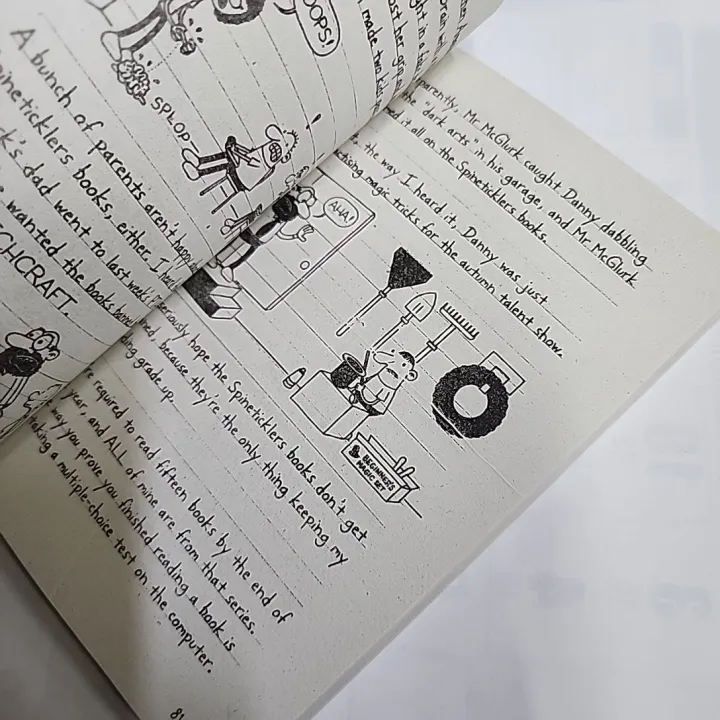 OOPS!
SPLOP
A bunch of parents aren't happy
Spineticklers books, either. I
dad went to last week's
wanted the books
CHCRAFT.
made two kids
parently, Mr. McGlurk caught Danny dabbling
the "dark arts" in his garage, and Mr. McGlurk
it all on the Spineticklers books.
the way I heard it, Danny was just
magic tricks for the autumn talent show.
AHA!
BEGINNER'S
MAGIC SET
seriously hope the Spineticklers books don't get
because they're the only thing keeping my
grade up.
required to read fifteen books by the end of
year, and ALL of mine are from that series.
way you prove you finished reading a book is
taking a multiple-choice test on the computer.
81